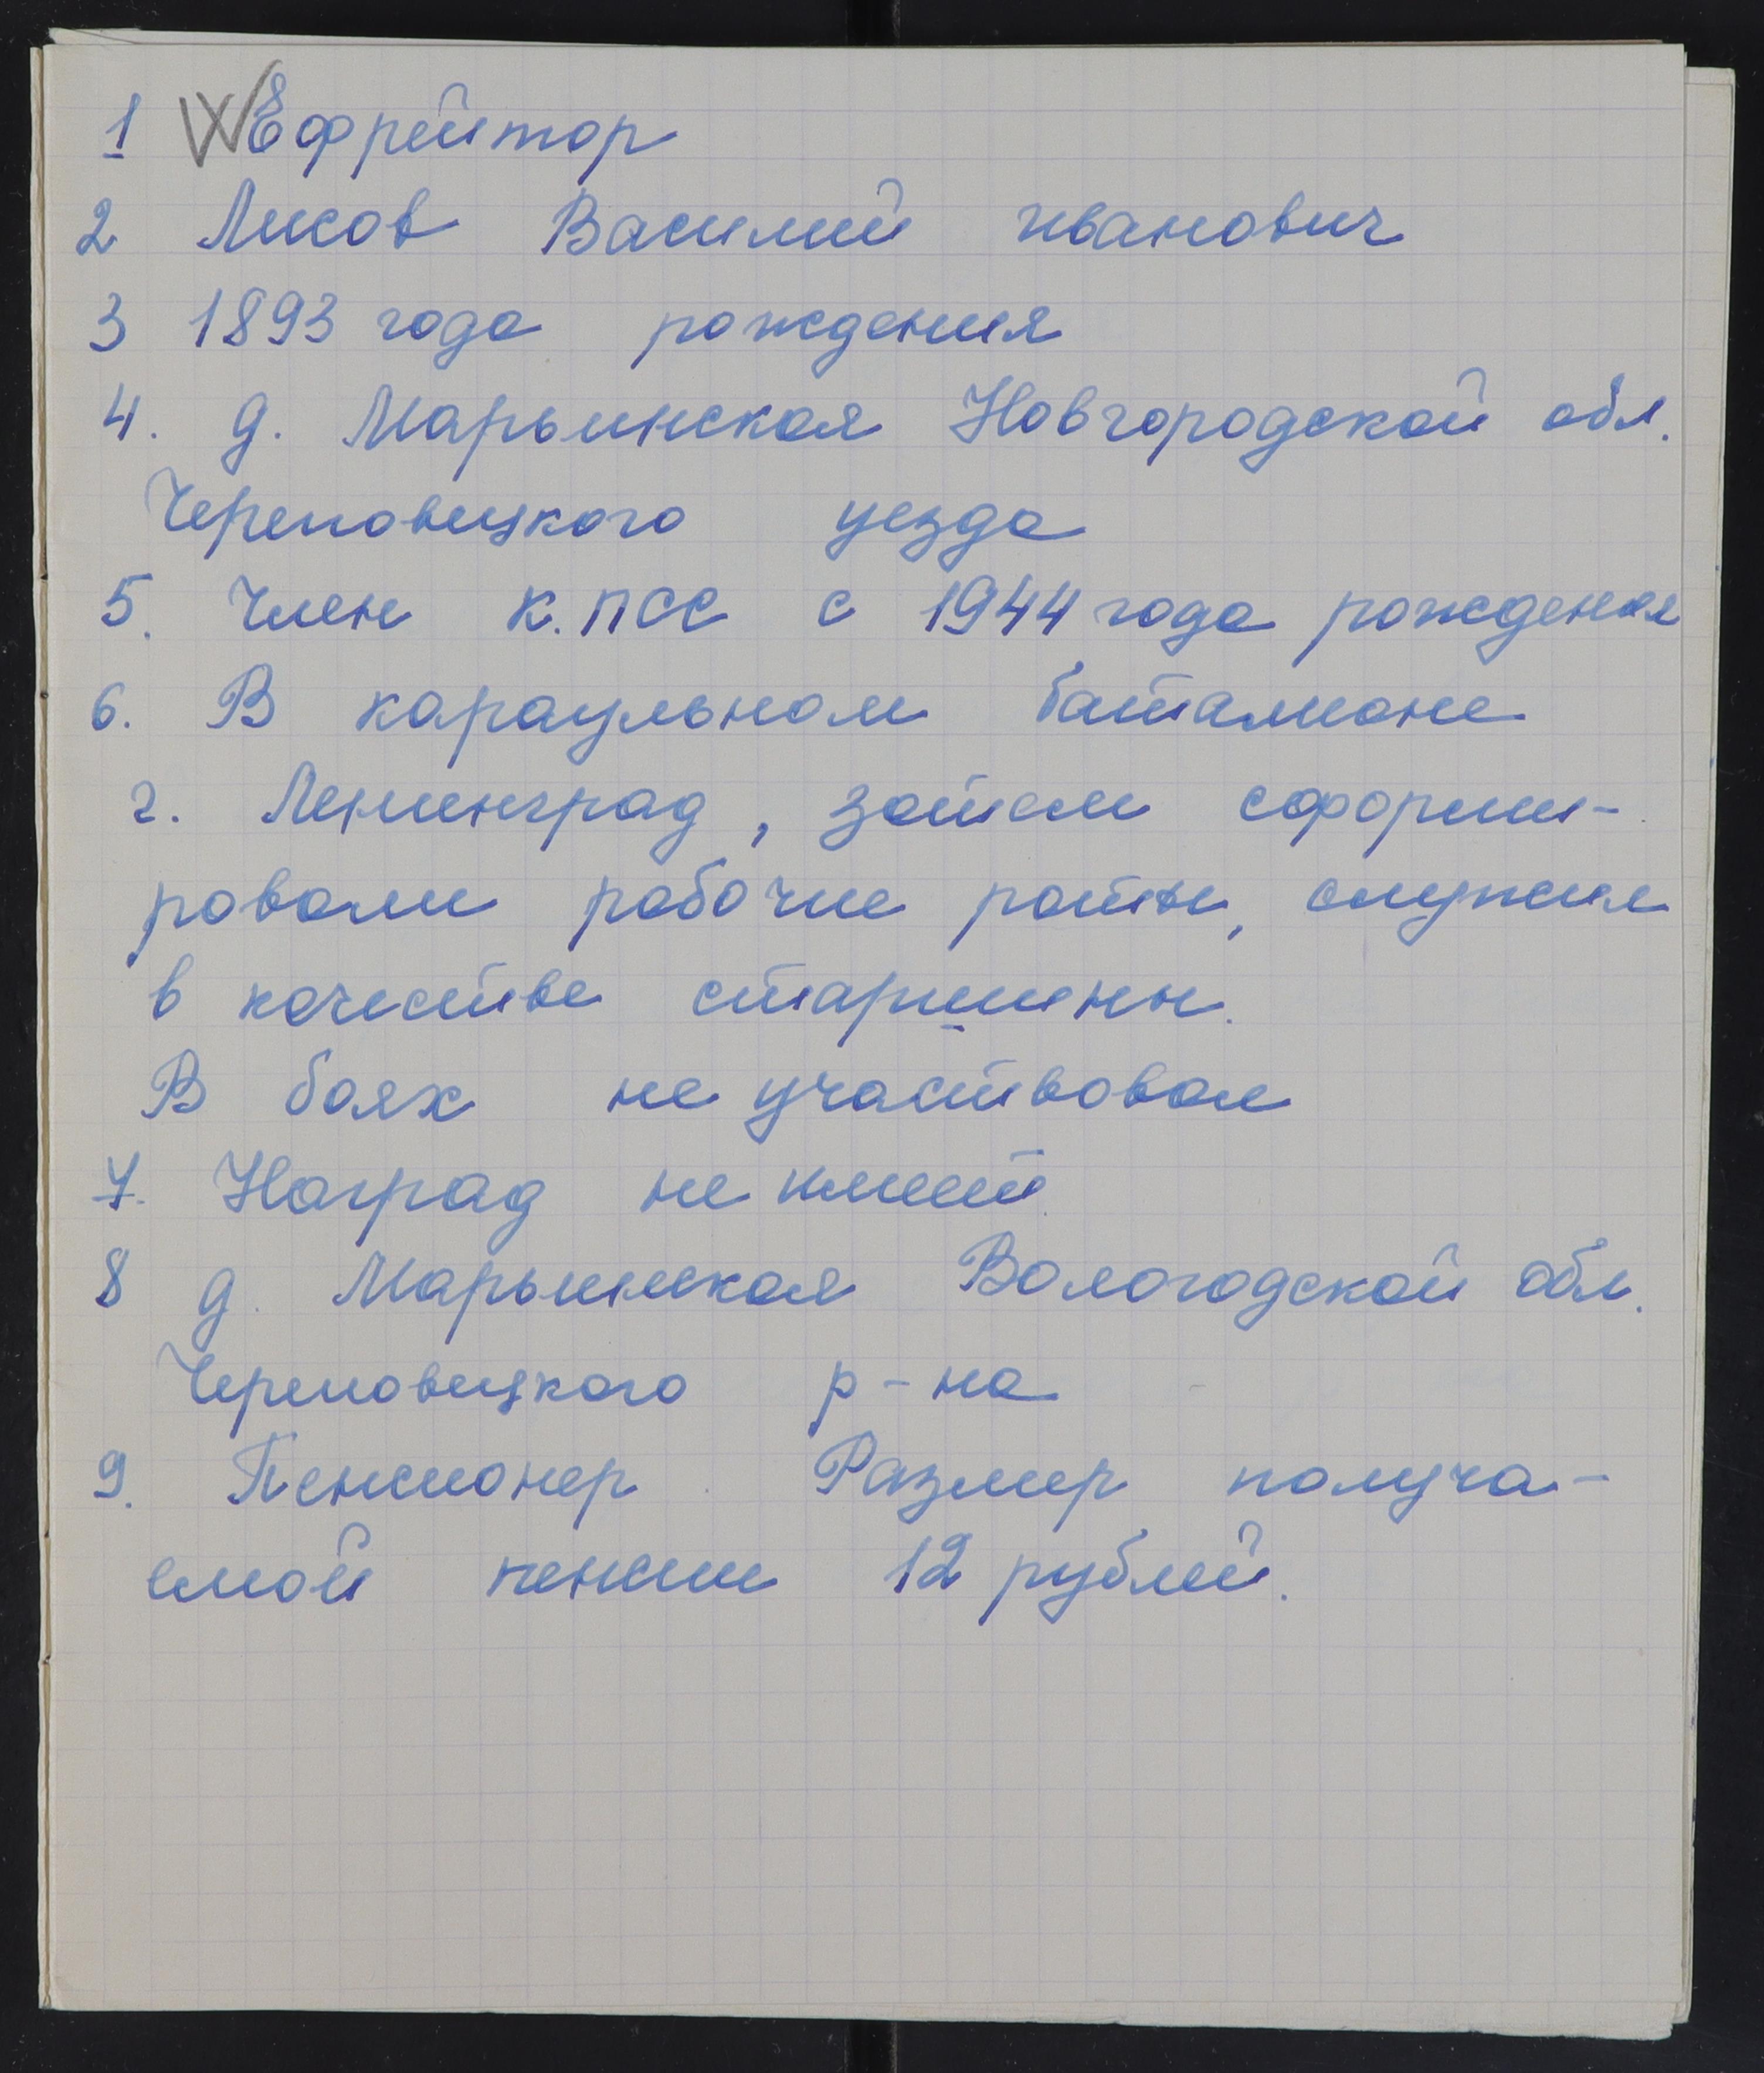 1 Ефрейтор
2 Лисов Василий иванович
3 1893 года рождения
4. д. Марьинская Новгородской обл.
Череповецкого уезда
5. Член К.ПСС с 1944 года рождения
6. В караульном баталионе
г. Ленинград, затем сформи-
ровали рабочие роты, служил
в качестве старшины.
В боях не участвовал
7. Наград не имеет.
8 д. Марьинская Вологодской обл.
Череповецкого р-на
9. Пенсионер. Размер получа-
емой пенсии 12 рублей.